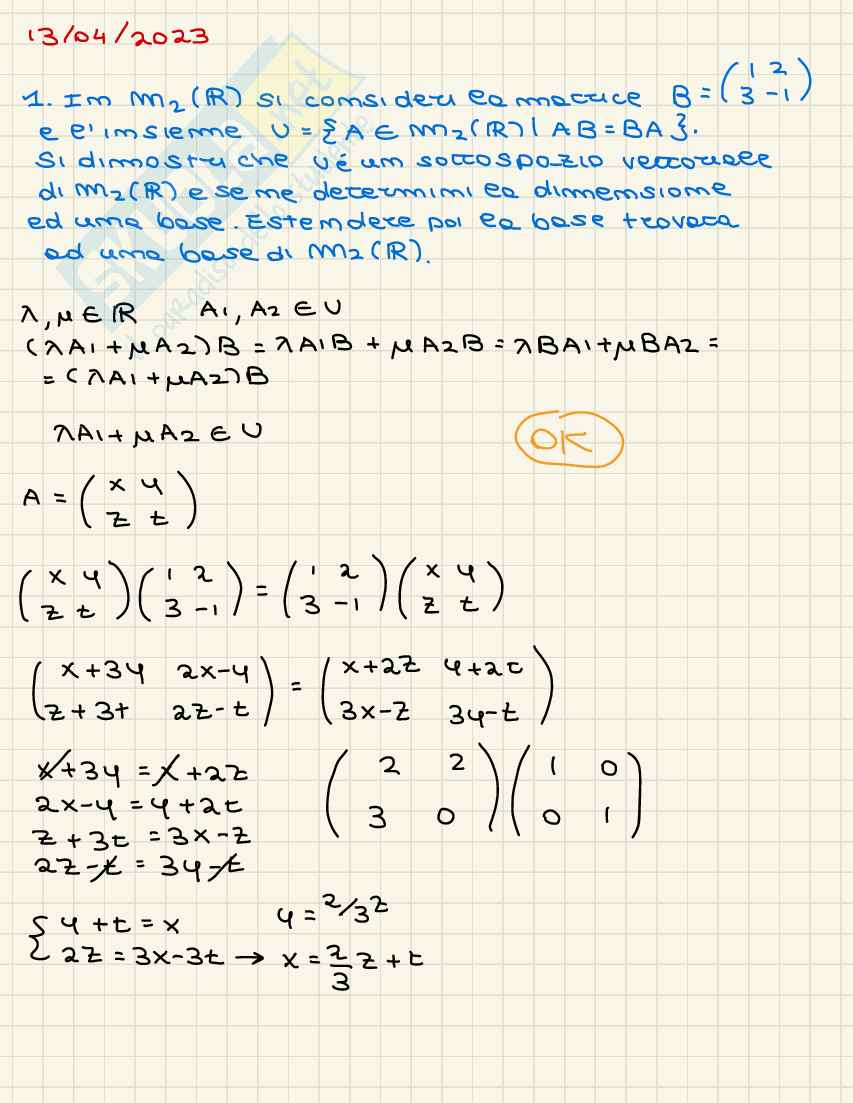 13/04/2023
1. In M₂(ℝ) si consideri la matrice B = (1 2 / 3 -1)
e l'insieme U = {A ∈ M₂(ℝ) | AB = BA}.
Si dimostri che U é un sottospazio vettoriale
di M₂(ℝ) e se ne determini la dimensione
ed una base. Estendere poi la base trovata
ad una base di M₂(ℝ).
λ, μ ∈ ℝ A1, A2 ∈ U
(λA1 + μA2)B = λA1B + μA2B = λBA1 + μBA2 =
= (λA1 + μA2)B
λA1 + μA2 ∈ U
OK
A = (x y / z t)
(x y / z t)(1 2 / 3 -1) = (1 2 / 3 -1)(x y / z t)
(x+3y 2x-y / z+3t 2z-t) = (x+2z y+2t / 3x-z 3y-t)
x+3y = x+2z
2x-y = y+2t
z+3t = 3x-z
2z-t = 3y-t
(2 2 / 3 0)(1 0 / 0 1)
{ y+t = x y = 2/3z
2z = 3x-3t → x = 2/3 z + t